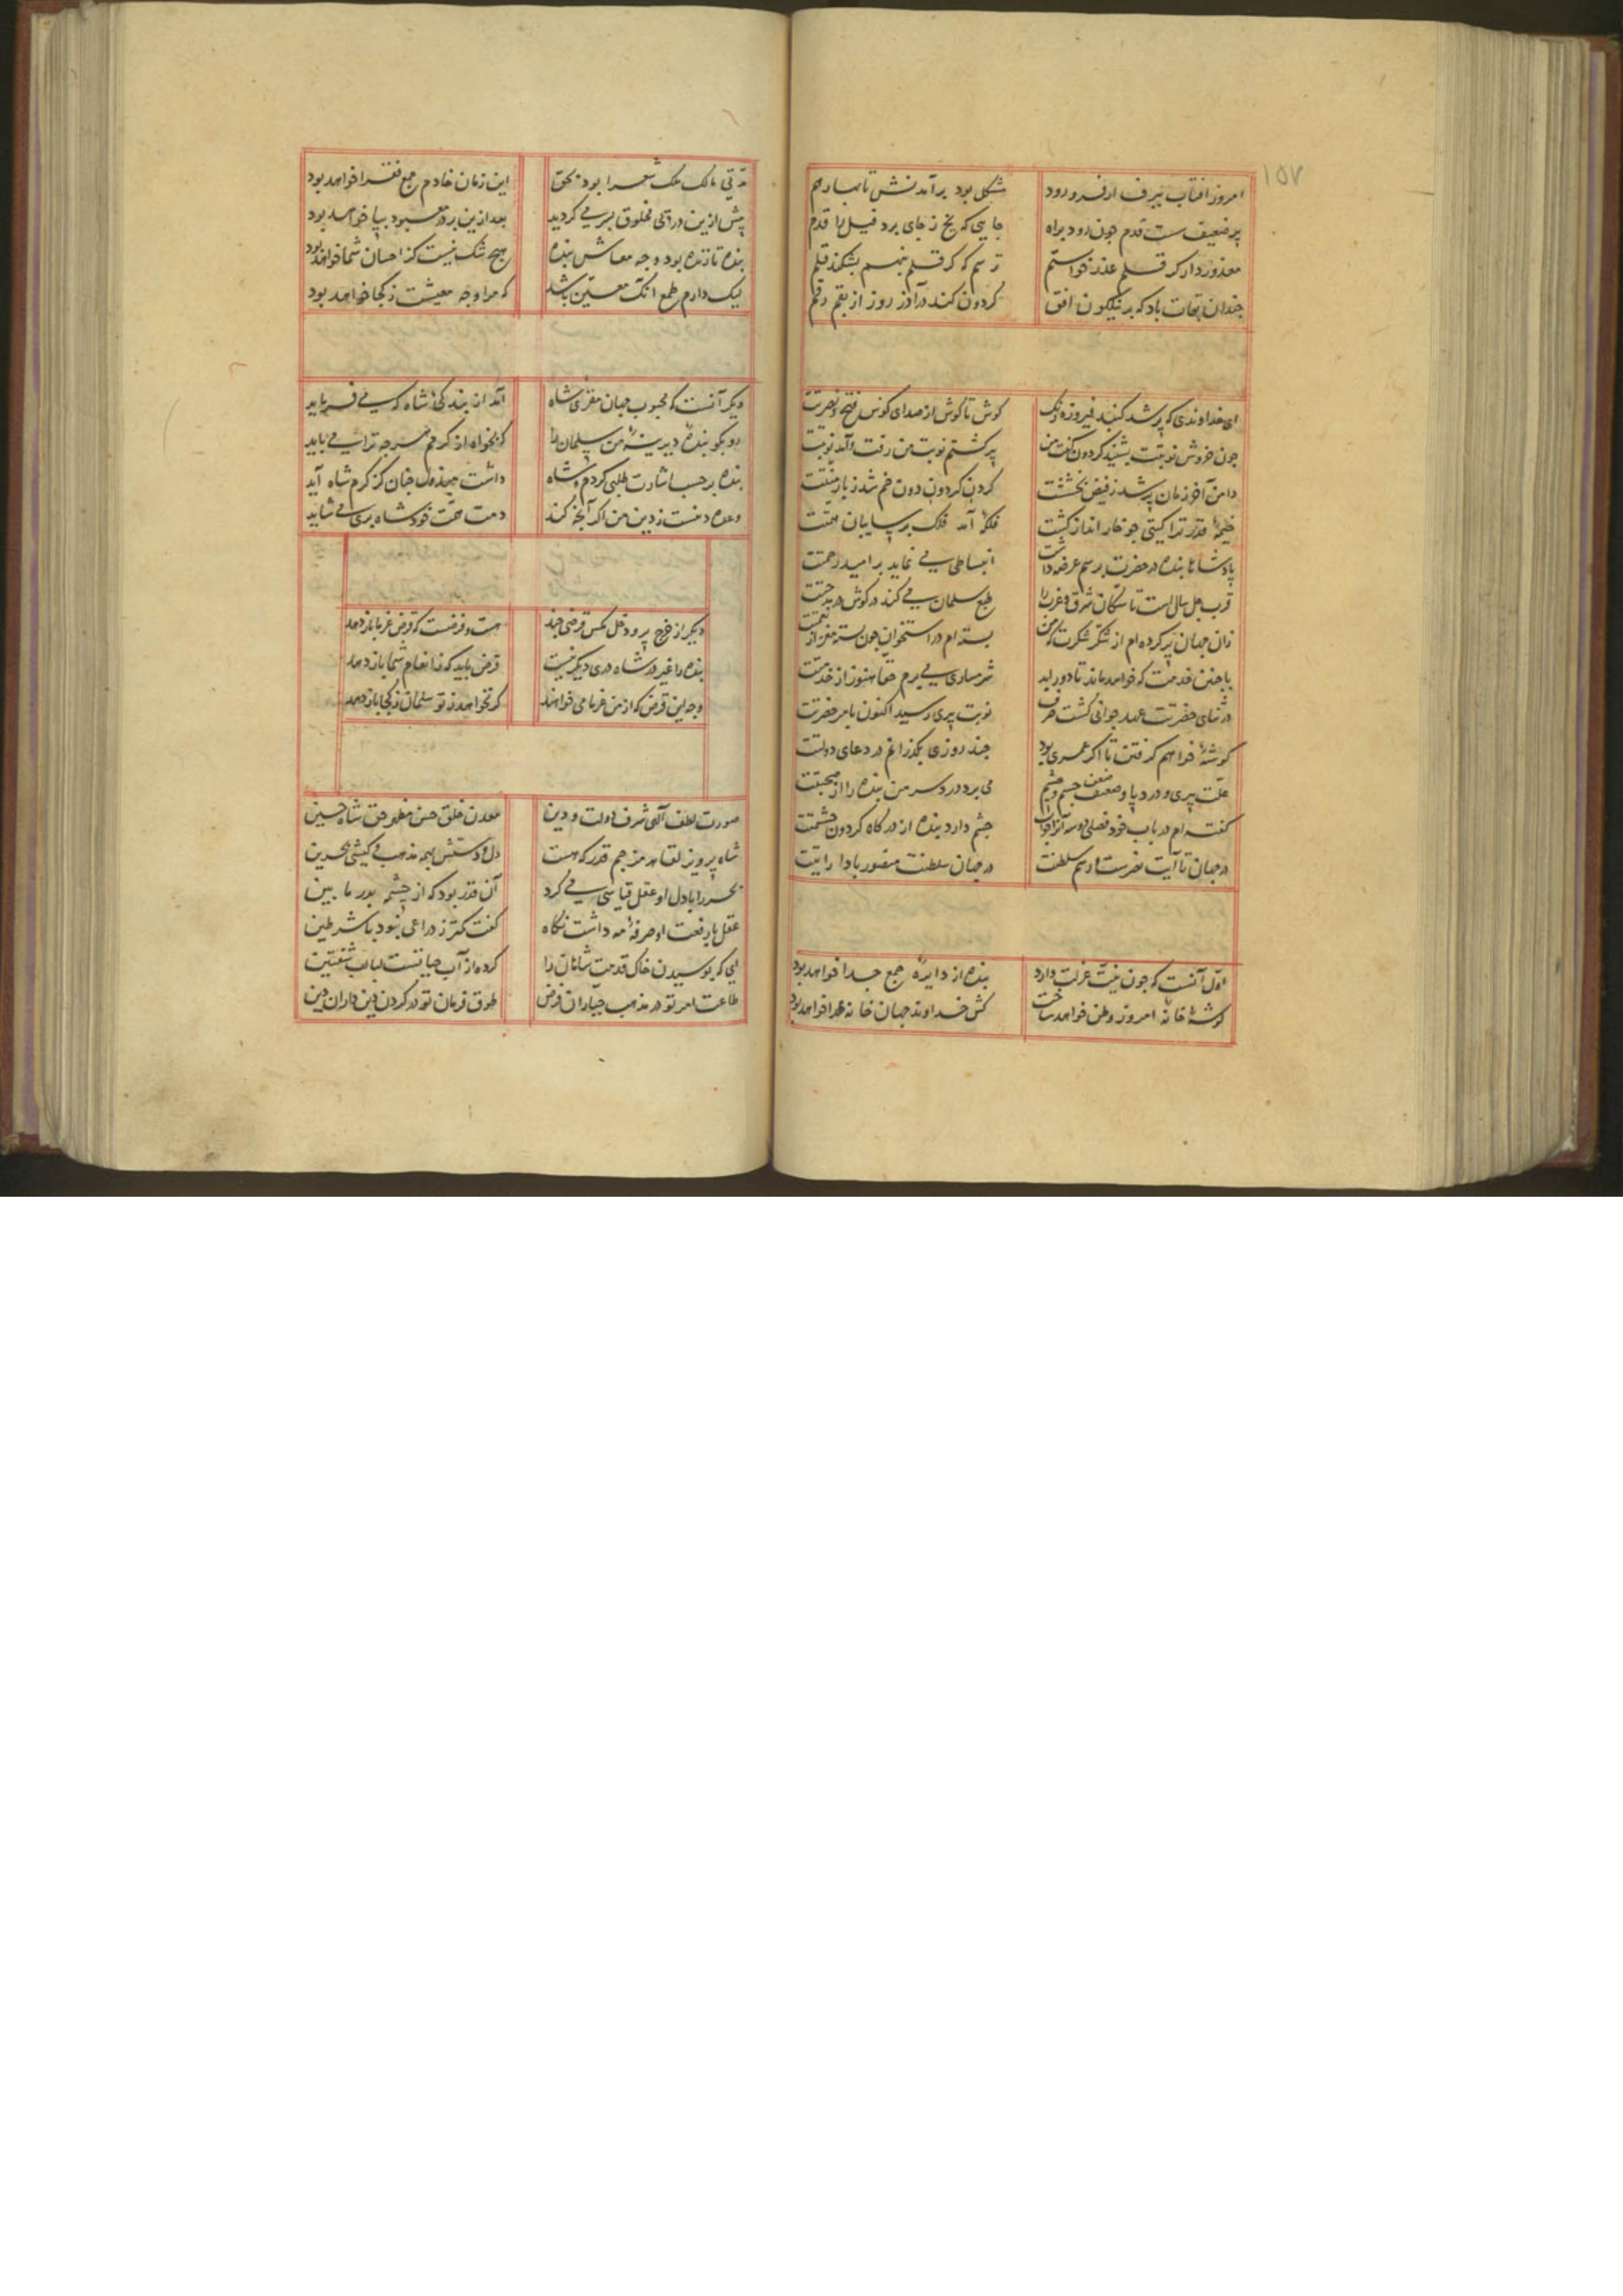 ١٥٧
امروز افتاب ببرف ار فرو رود مشکل بود برآمدنش تا بهار هم
پیر ضعیف سست قدم چون رود براه جایی که یخ ز جای برد فیل را قدم
معذور دار کر قلم عذر خواستم ترسم که کر قلم بنهم بشکند قلم
چندان بقات باد که بر نیلکون افق کردون کند در آذر روز از بقم رقم
ای خداوندی که پر شد کنبد فیروزه رنک کوش تا کوش از صدای کوس فتح و نصرتت
چون خروش نوبتت بشنید کردون کفت من پیر کشتم نوبت من رفت و آمد نوبتت
دامن آخر زمان پر شد ز فیض بخششت کردن کردون دون خم شد ز بار منتت
خیمهٔ قدر ترا کیتی چو خار انداز کشت فلکهٔ آمد فلک بر سایبان همتت
پادشاها بنده در حضرت برسم عرضه داشت انبساطی می نماید بر امید رحمتت
قرب چل سال است تا سکان شرق و غرب را طبع سلمان می کند در کوش در مدحتت
زان جهان پر کرده ام از شکر شکرت که من بسته ام در استخوان چون پسته مغز از نعمتت
با چنین خدمت که خواهد ماند تا دور ابد شرمساری می برم حقا هنوز از خدمتت
در ثنای حضرتت عهد جوانی کشت صرف نوبت پیری رسید اکنون بامر حضرتت
کوشهٔ خواهم کرفتن تا اکر عمری بود چند روزی بکذرانم در دعای دولتت
علت پیری و درد پا و ضعف جسم و چشم می برد درد سر من بنده را از صحبتت
کفته ام در باب خود فصلی دو سه آنرا جواب چشم دارد بنده از درکاه کردون حشمتت
در جهان تا آیت نصرست و رسم سلطنت در جهان سلطنت منصور بادا رایتت
اول آنست که چون نیت عزلت دارد بنده از دایرهٔ جمع جدا خواهد بود
کوشهٔ خانهٔ امروز وطن خواهد ساخت کش خداوند جهان خانه خدا خواهد بود
مدتی مالک ملک شعرا بود بحق این زمان خادم جمع فقرا خواهد بود
پیش ازین در پی مخلوق بسر می کردید بعد ازین بر در معبود بپا خواهد بود
بنده تا زنده بود وجه معاش بنده هیچ شک نیست کز احسان شما خواهد بود
لیک دارم طمع آنک معین باشد که مرا وجه معیشت ز کجا خواهد بود
دیکر آنست که محبوب جهان مقری شاه آمد از بندکی شاه که می فرماید
رو بکو بندهٔ دیرینهٔ من سلمان را که بخواه از کرمم هر چه ترا می باید
بنده بر حسب اشارت طلبی کردم و شاه داشت مبذول چنان کز کرم شاه آید
وعده دینست ز دین من اکر آنچه کند ذمت همت خود شاه بری می شاید
دیکر از خرج پر و دخل کمس قرضی چند هست و فرضست که قرض غرما باز دهد
بنده را غیر در شاه دری دیکر نیست قرض باید که ز انعام شما باز دهد
وجه این قرض که از من غرما می خواهند کر نخواهد ز تو سلمان ز کجا باز دهد
صورت لطف آلهی شرف دولت و دین معدن خلق حسن مظهر حق شاه حسین
شاه پرویز لقا هرمز جم قدر که هست دل و دستش بهمه مذهب و کیشی بحرین
بحر را با دل او عقل قیاسی می کرد آن قدر بود که از چشمه بدر ما بین
عقل با رفعت او صرفهٔ مه داشت نکاه کفت کمتر ز ذراعی بنود با شرطین
ای که بوسیدن خاک قدمت شاهان را کرده از آب حیاتست لبالب شفتین
طاعت امر تو در مذهب جباران فرض طوق فرمان تو در کردن دین داران دین